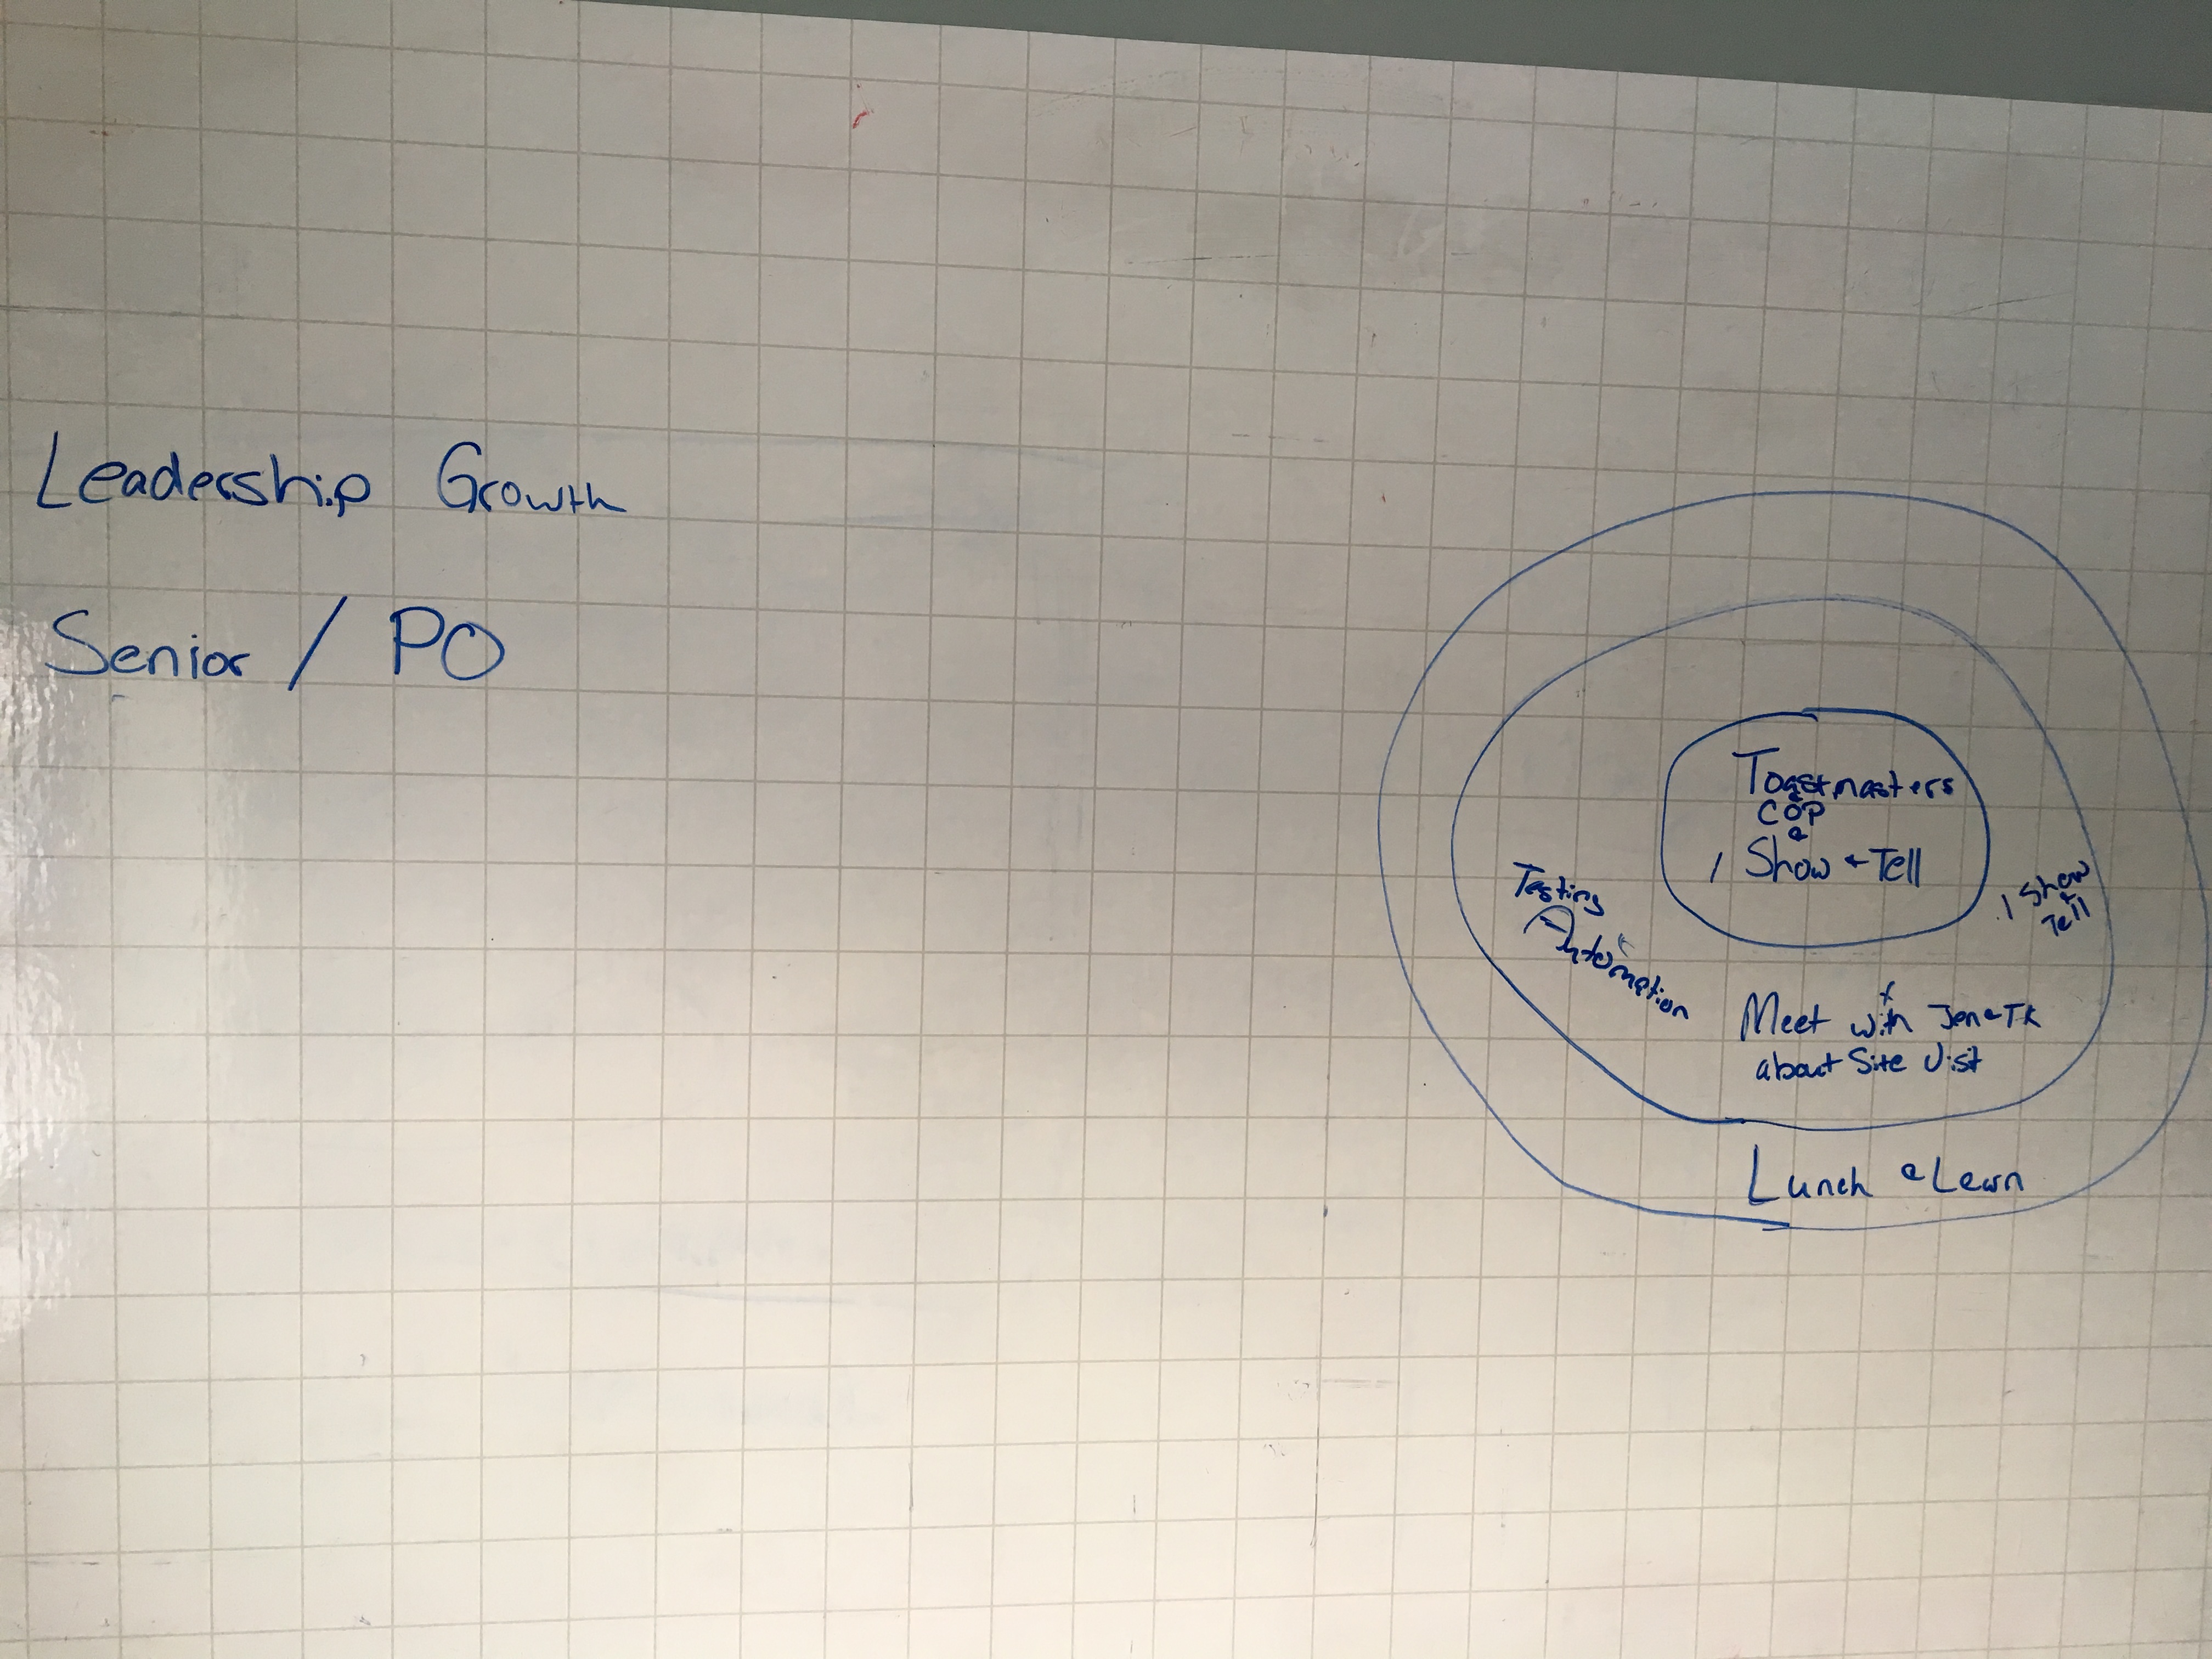 Leadership Growth
Senior / PO
Toastmasters
COP
&
1 Show & Tell
1 Show
&
Tell
Testing
Automation
Meet with Jen & TK
about Site Vist
Lunch & Learn